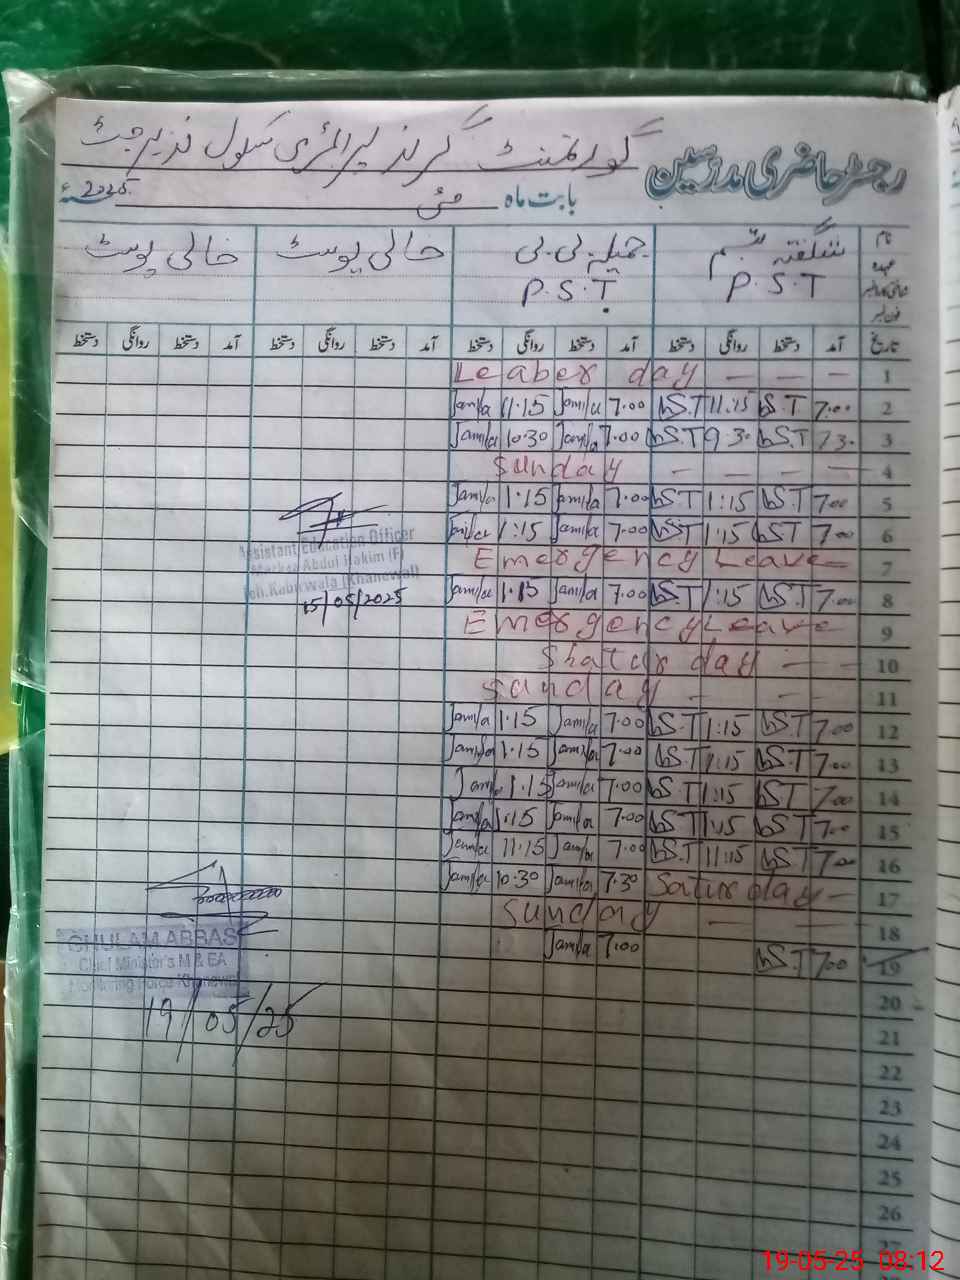 رجسٹر حاضری مدرسین گورنمنٹ گرلز پرائمری سکول نذیر جٹ
بابت ماہ مئی 2025ء
نام شگفتہ تبسم جمیلہ بی بی خالی پوسٹ خالی پوسٹ
عہدہ P.S.T P.S.T
تاریخ آمد دستخط روانگی دستخط آمد دستخط روانگی دستخط آمد دستخط روانگی دستخط آمد دستخط روانگی دستخط
Leaber day - - - 1
Jamila 11.15 Jamila 7.00 S.T 11.15 S.T 7.00 2
Jamila 10.30 Jamila 7.00 S.T 9.30 S.T 7.30 3
Sunday - - - - 4
Jamila 1.15 Jamila 7.00 S.T 1:15 S.T 7.00 5
Jamila 1:15 Jamila 7.00 S.T 1:15 S.T 7.00 6
Emergency Leave 7
Jamila 1.15 Jamila 7.00 S.T 1:15 S.T 7.00 8
Emergency Leave 9
Shatur day - - 10
Sunday - - - 11
Jamila 1.15 Jamila 7.00 S.T 1:15 S.T 7.00 12
Jamila 1.15 Jamila 7.00 S.T 1:15 S.T 7.00 13
Jamila 1.15 Jamila 7.00 S.T 1:15 S.T 7.00 14
Jamila 1.15 Jamila 7.00 S.T 1:15 S.T 7.00 15
Jamila 11.15 Jamila 7.00 S.T 11:15 S.T 7.00 16
Jamila 10.30 Jamila 7.30 Satur day - 17
Sunday - - - 18
Jamila 7.00 S.T 7.00 19
20
21
22
23
24
25
26
27
Assistant Education Officer
Markaz Abdul Hakim (F)
Teh. Kabirwala (Khanewal)
15/05/2025
GHULAM ABBAS
Chief Minister's M & EA
Monitoring Force Khanewal
19/05/25
19-05-25 08:12